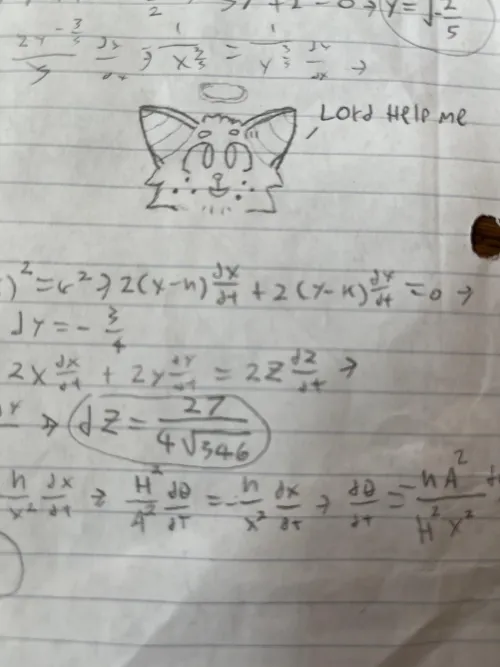 2 - 0 → y = √-2/5
1/x^(2/3) = 1/y^(3/5) dy/dx →
Lord Help me
)² = r² → 2(x-h) dx/dt + 2(y-k) dy/dt = 0 →
dy = - 3/4
2x dx/dt + 2y dy/dt = 2z dz/dt →
→ dz = 27/(4√346)
h/x² dx/dt → H²/A² dθ/dt = - h/x² dx/dt → dθ/dt = -hA²/(H²x²)